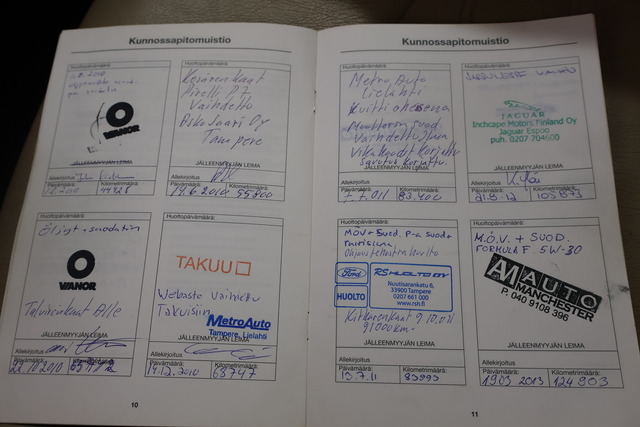 Kunnossapitomuistio
Huoltopäivämäärä:
VIANOR
JÄLLEENMYYJÄN LEIMA
Allekirjoitus
Päivämäärä:
Kilometrimäärä:
44928
Huoltopäivämäärä:
Kesärenkaat
Pirelli P7
Vaihdettu
AskoSaari Oy
Tampere
JÄLLEENMYYJÄN LEIMA
Allekirjoitus
Päivämäärä:
Kilometrimäärä:
55300
Huoltopäivämäärä:
Öljyt + suodatin
VIANOR
Talvirenkaat Alle
JÄLLEENMYYJÄN LEIMA
Allekirjoitus
Päivämäärä:
Kilometrimäärä:
22.10.2010
Huoltopäivämäärä:
TAKUU
Webasto vaihdettu
Takuisiin
MetroAuto
Tampere, Lielahti
JÄLLEENMYYJÄN LEIMA
Allekirjoitus
Päivämäärä:
Kilometrimäärä:
14.12.2010
68747
10
Kunnossapitomuistio
Huoltopäivämäärä:
Metro Auto
Lielahti
Kuitti oheisena
Moottorin suod.
Vaihdettu
Vikakoodit Korjattu
Korjattu.
JÄLLEENMYYJÄN LEIMA
Allekirjoitus
Päivämäärä:
Kilometrimäärä:
83.400
Huoltopäivämäärä:
JAGUAR
Inchcape Motors Finland Oy
Jaguar Espoo
puh. 0207 704600
JÄLLEENMYYJÄN LEIMA
Allekirjoitus
Päivämäärä:
Kilometrimäärä:
21.8-12
105873
Huoltopäivämäärä:
MÖV + Suod.
Ford
HUOLTO
RS HUOLTO OY
Nuutisarankatu 6,
33900 Tampere
0207 661 000
www.rsh.fi
Kitkarenkaat 9.10.011
91000km-
JÄLLEENMYYJÄN LEIMA
Allekirjoitus
Päivämäärä:
Kilometrimäärä:
13.7.11
83993
Huoltopäivämäärä:
M.Ö.V. + SUOD.
FORMULA F 5W-30
AM AUTO
MANCHESTER
P. 040 9108 396
JÄLLEENMYYJÄN LEIMA
Allekirjoitus
Päivämäärä:
Kilometrimäärä:
19.03 2013
124903
11